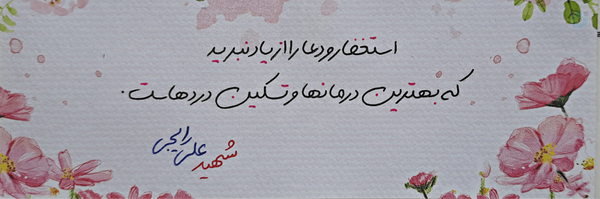 استغفار و دعا را از یاد نبرید
که بهترین درمانها و تسکین دردهاست.
شهید علی رایجی